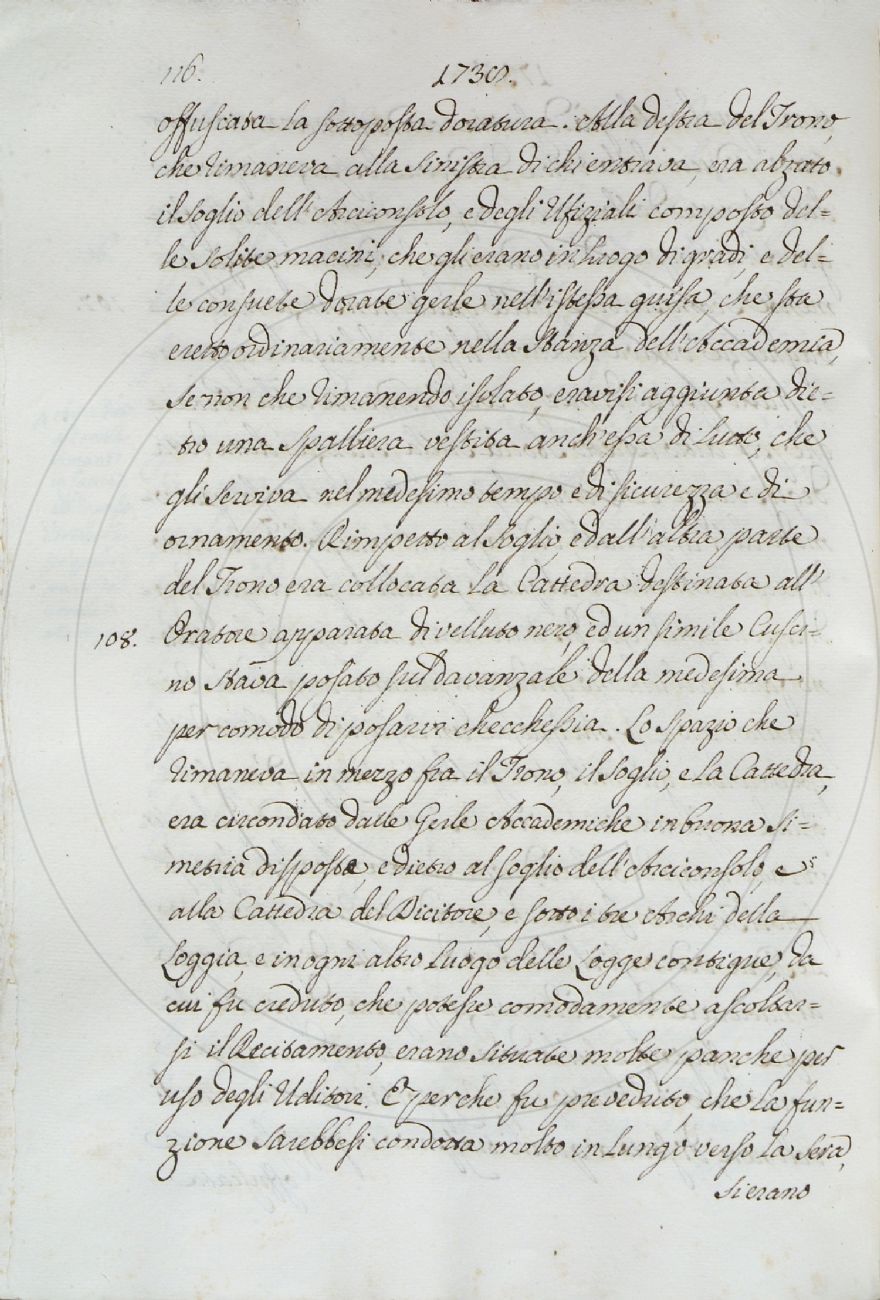 116. 1738.
offuscata la sottoposta doratura. Alla destra del Trono,
che rimaneva alla sinistra di chi entrava, era alzato
il soglio dell'Arciconsolo, e degli Ufiziali composto del=
le solite macini, che gli erano in luogo di gradi, e del=
le consuete dorate gerle nell'istessa guisa, che sta
eretto ordinariamente nella stanza dell'Accademia,
se non che rimanendo isolato, eravisi aggiunta die=
tro una spalliera vestita anch'essa di luto, che
gli serviva nel medesimo tempo e di sicurezza e di
ornamento. Rimpetto al soglio, ed all'altra parte
del Trono era collocata la Cattedra destinata all'
108. Oratore apparata di velluto nero, ed un simile Cusci=
no stava posato sul davanzale della medesima
per comodo di posarvi checchessia. Lo spazio che
rimaneva in mezzo fra il Trono, il soglio, e la Cattedra,
era circondato dalle Gerle Accademiche in buona si=
metria disposte, e dietro al soglio dell'Arciconsolo, e
alla Cattedra del Dicitore, e sotto i tre Archi della
Loggia, e in ogni altro luogo delle Logge contigue, da
cui fu creduto, che potesse comodamente ascoltar=
si il Recitamento, erano situate molte panche per
uso degli Uditori. E perche fu preveduto, che la fun=
zione sarebbesi condotta molto in lungo verso la sera,
si erano